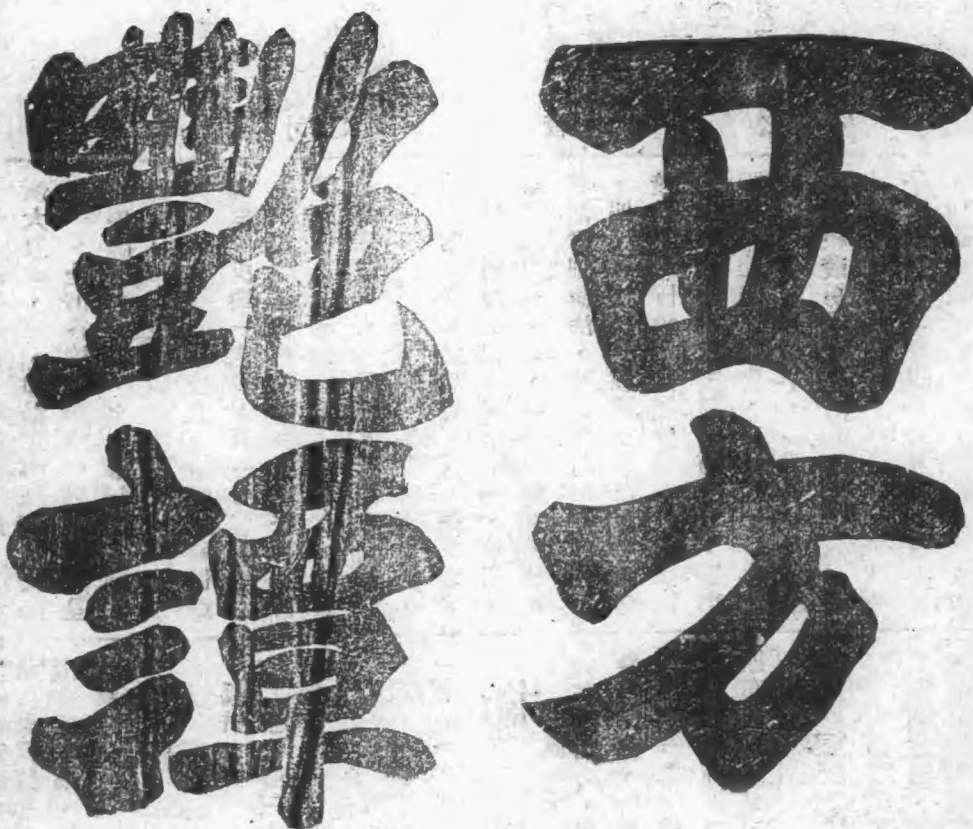 西方
豔譚